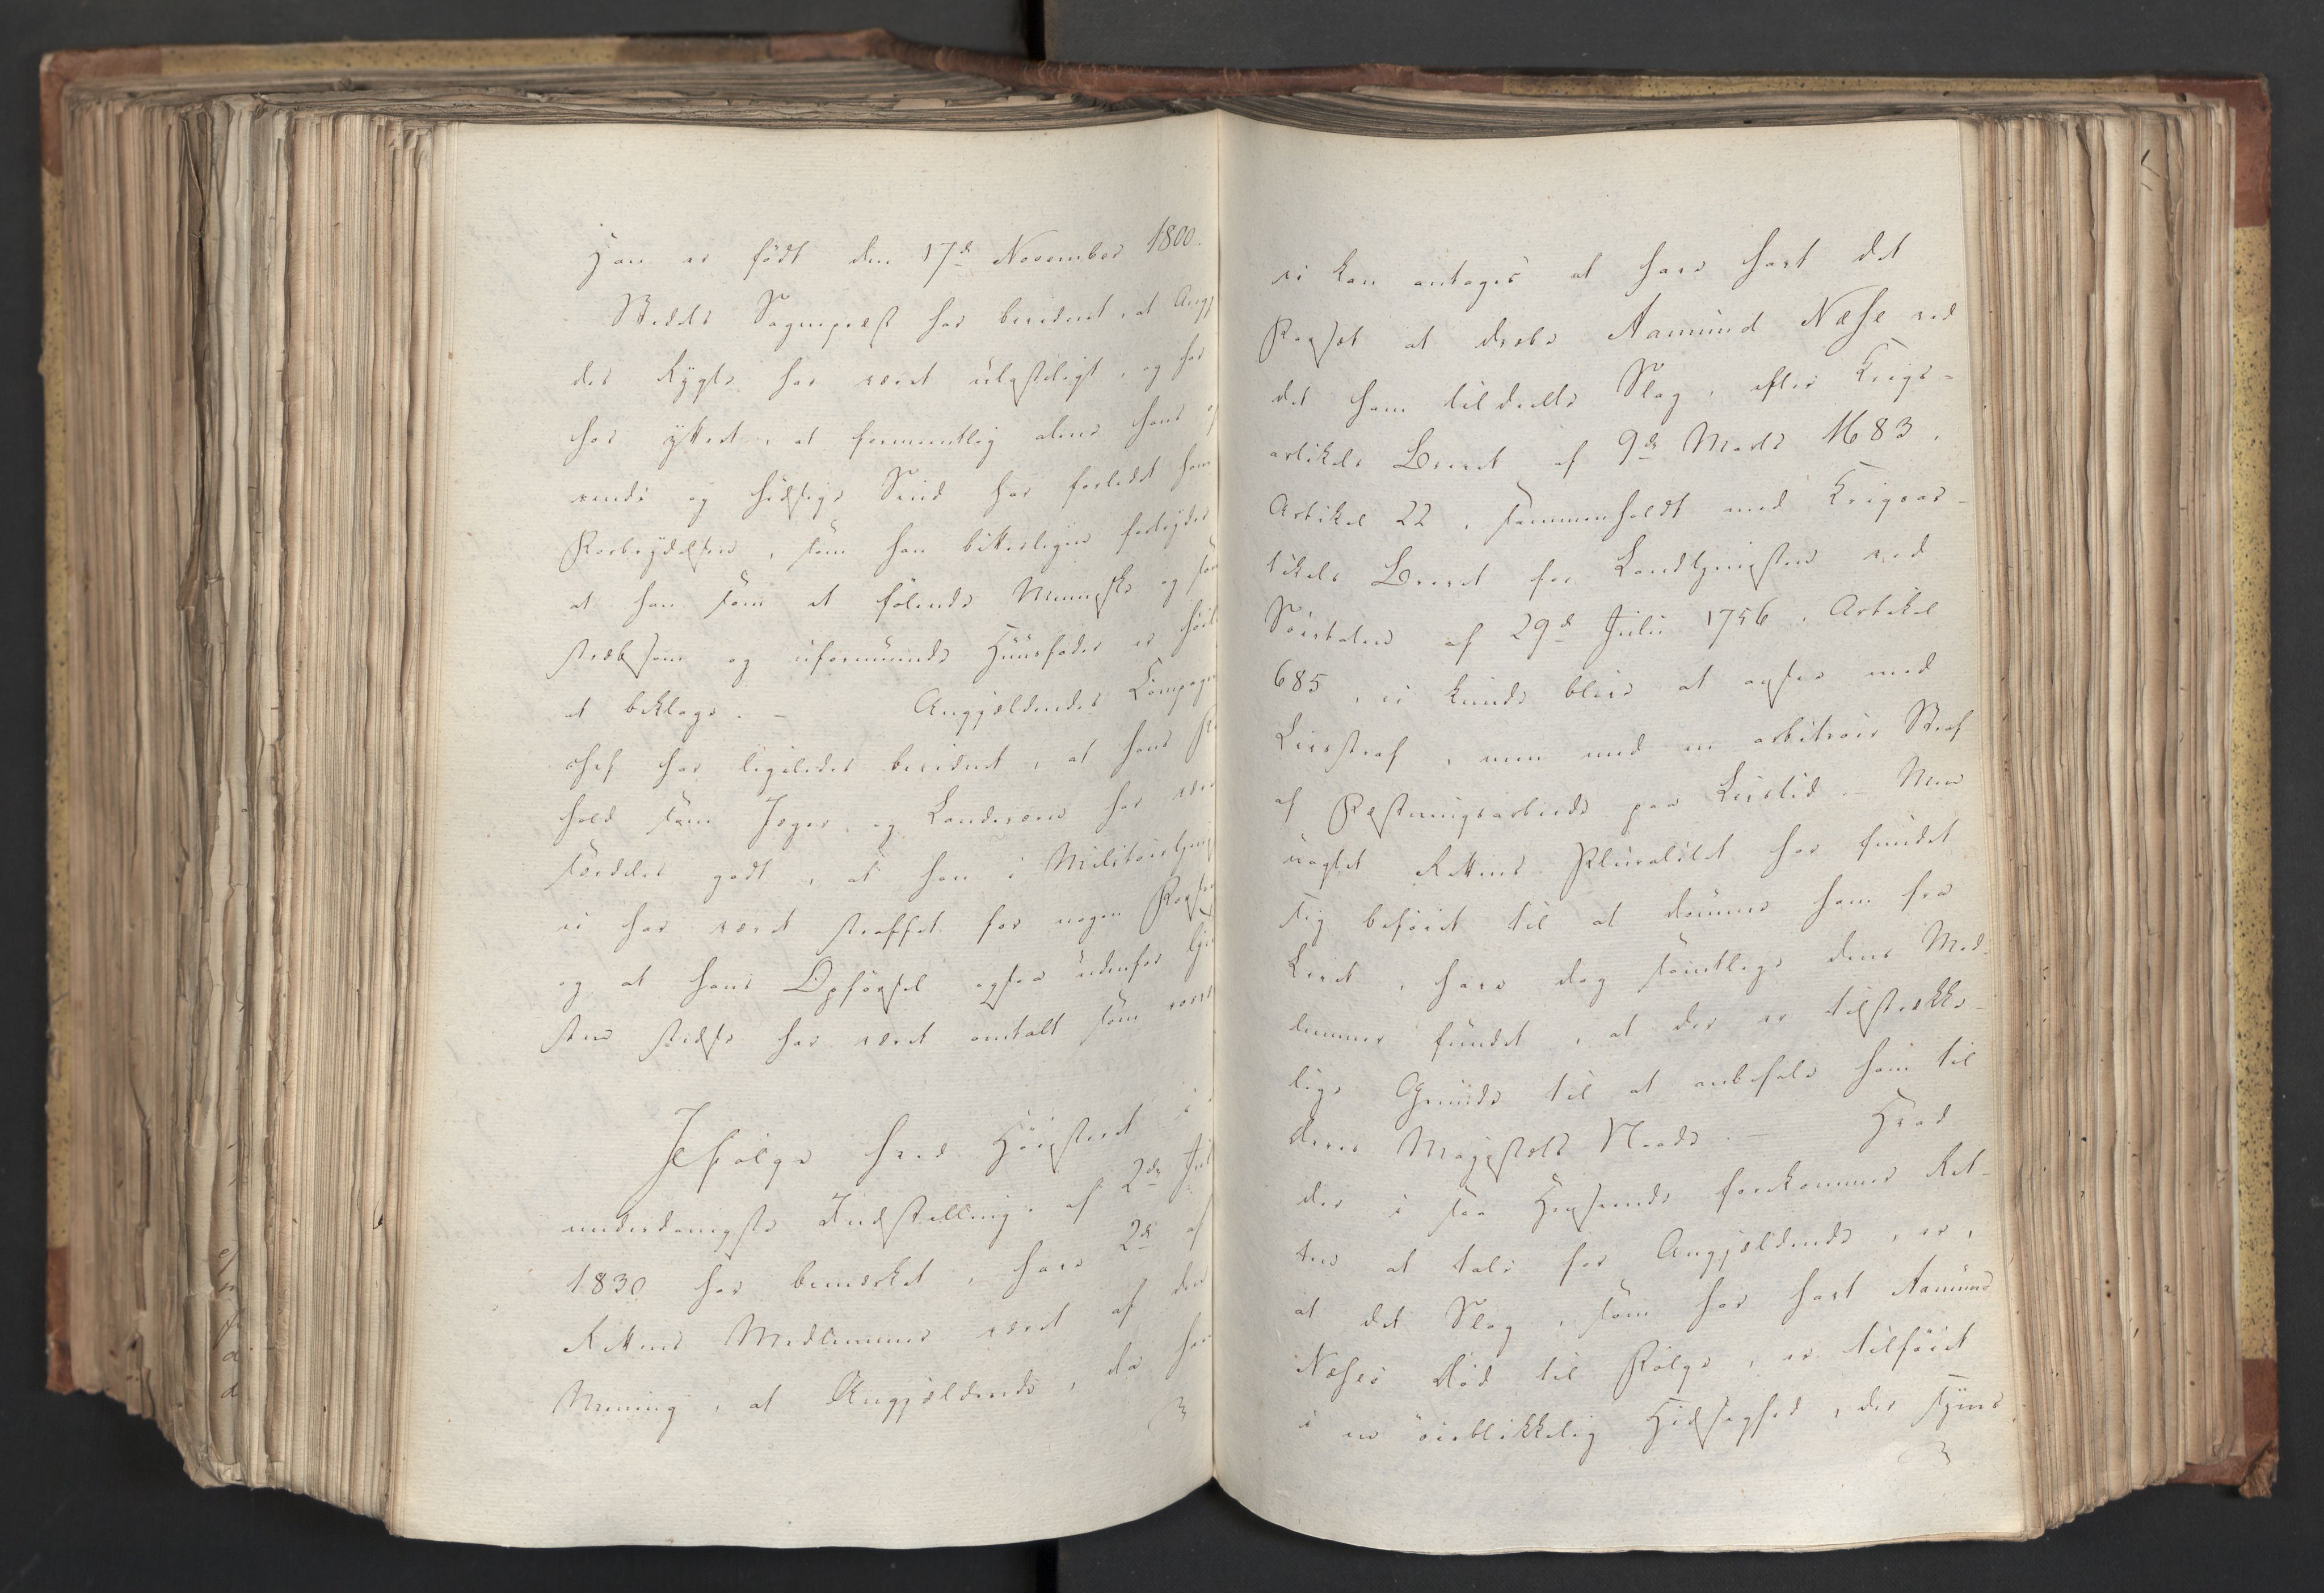 Han er født den 17de November 1800.
Stedets Sognepræst har bevidnet, at Angj
des Rygte har været ulasteligt, og har
har yttret, at formeentlig alene hans
rende og hidsige Sind har forledt ham
Forbrydelsen, som han bitterligen fortryder
at han som et følende Menneske og som
stræbsom og uformuende Huusfader er høil
at beklage. – Angjældendes Compagni
chef har ligeledes bevidnet, at hans Fo
hold som Jæger og Landeværn har vær
særdeles godt, at han i Militairtjen
ei har været straffet for nogen Forse
og at hans Opførsel ogsaa udenfor Tjen
sten stedse har været omtalt som
Ifølge hvad Høiesteret i
underdanigste Indstilling af 2den Jul
1830 har bemærket, have 2de af
Rettens Medlemmer været af den
Mening, at Angjældende, da han
ei kan antages at have havt det
Forsæt at dræbe Aamund Næse ved
det ham tildeelte Slag, efter Krigs-
artikels Brevet af 9de Marts 1683,
Artikel 22, sammenholdt med Krigsar-
tikels Brevet for Landtjenesten ved
Søeetaten af 29de Julii 1756, Artikel
685, ei kunde blive at ansee med
Livsstraf, men med en arbitrair Straf
af Fæstningsarbeide paa Livstid. – Men
uagtet Rettens Pluralitet har fundet
sig beføiet til at dømme ham fra
Livet, have dog samtlige dens Med-
lemmer fundet, at der er tilstrække-
lige Grunde til at anbefale ham til
Deres Majestæts Naade. – Hvad
der i saa Henseende forekommer Ret-
ten at tale for Angjældende, er,
at det Slag, som har havt Aamund
Næses Død til Følge, er tilføiet
i en øieblikkelig Hidsighed, der synes